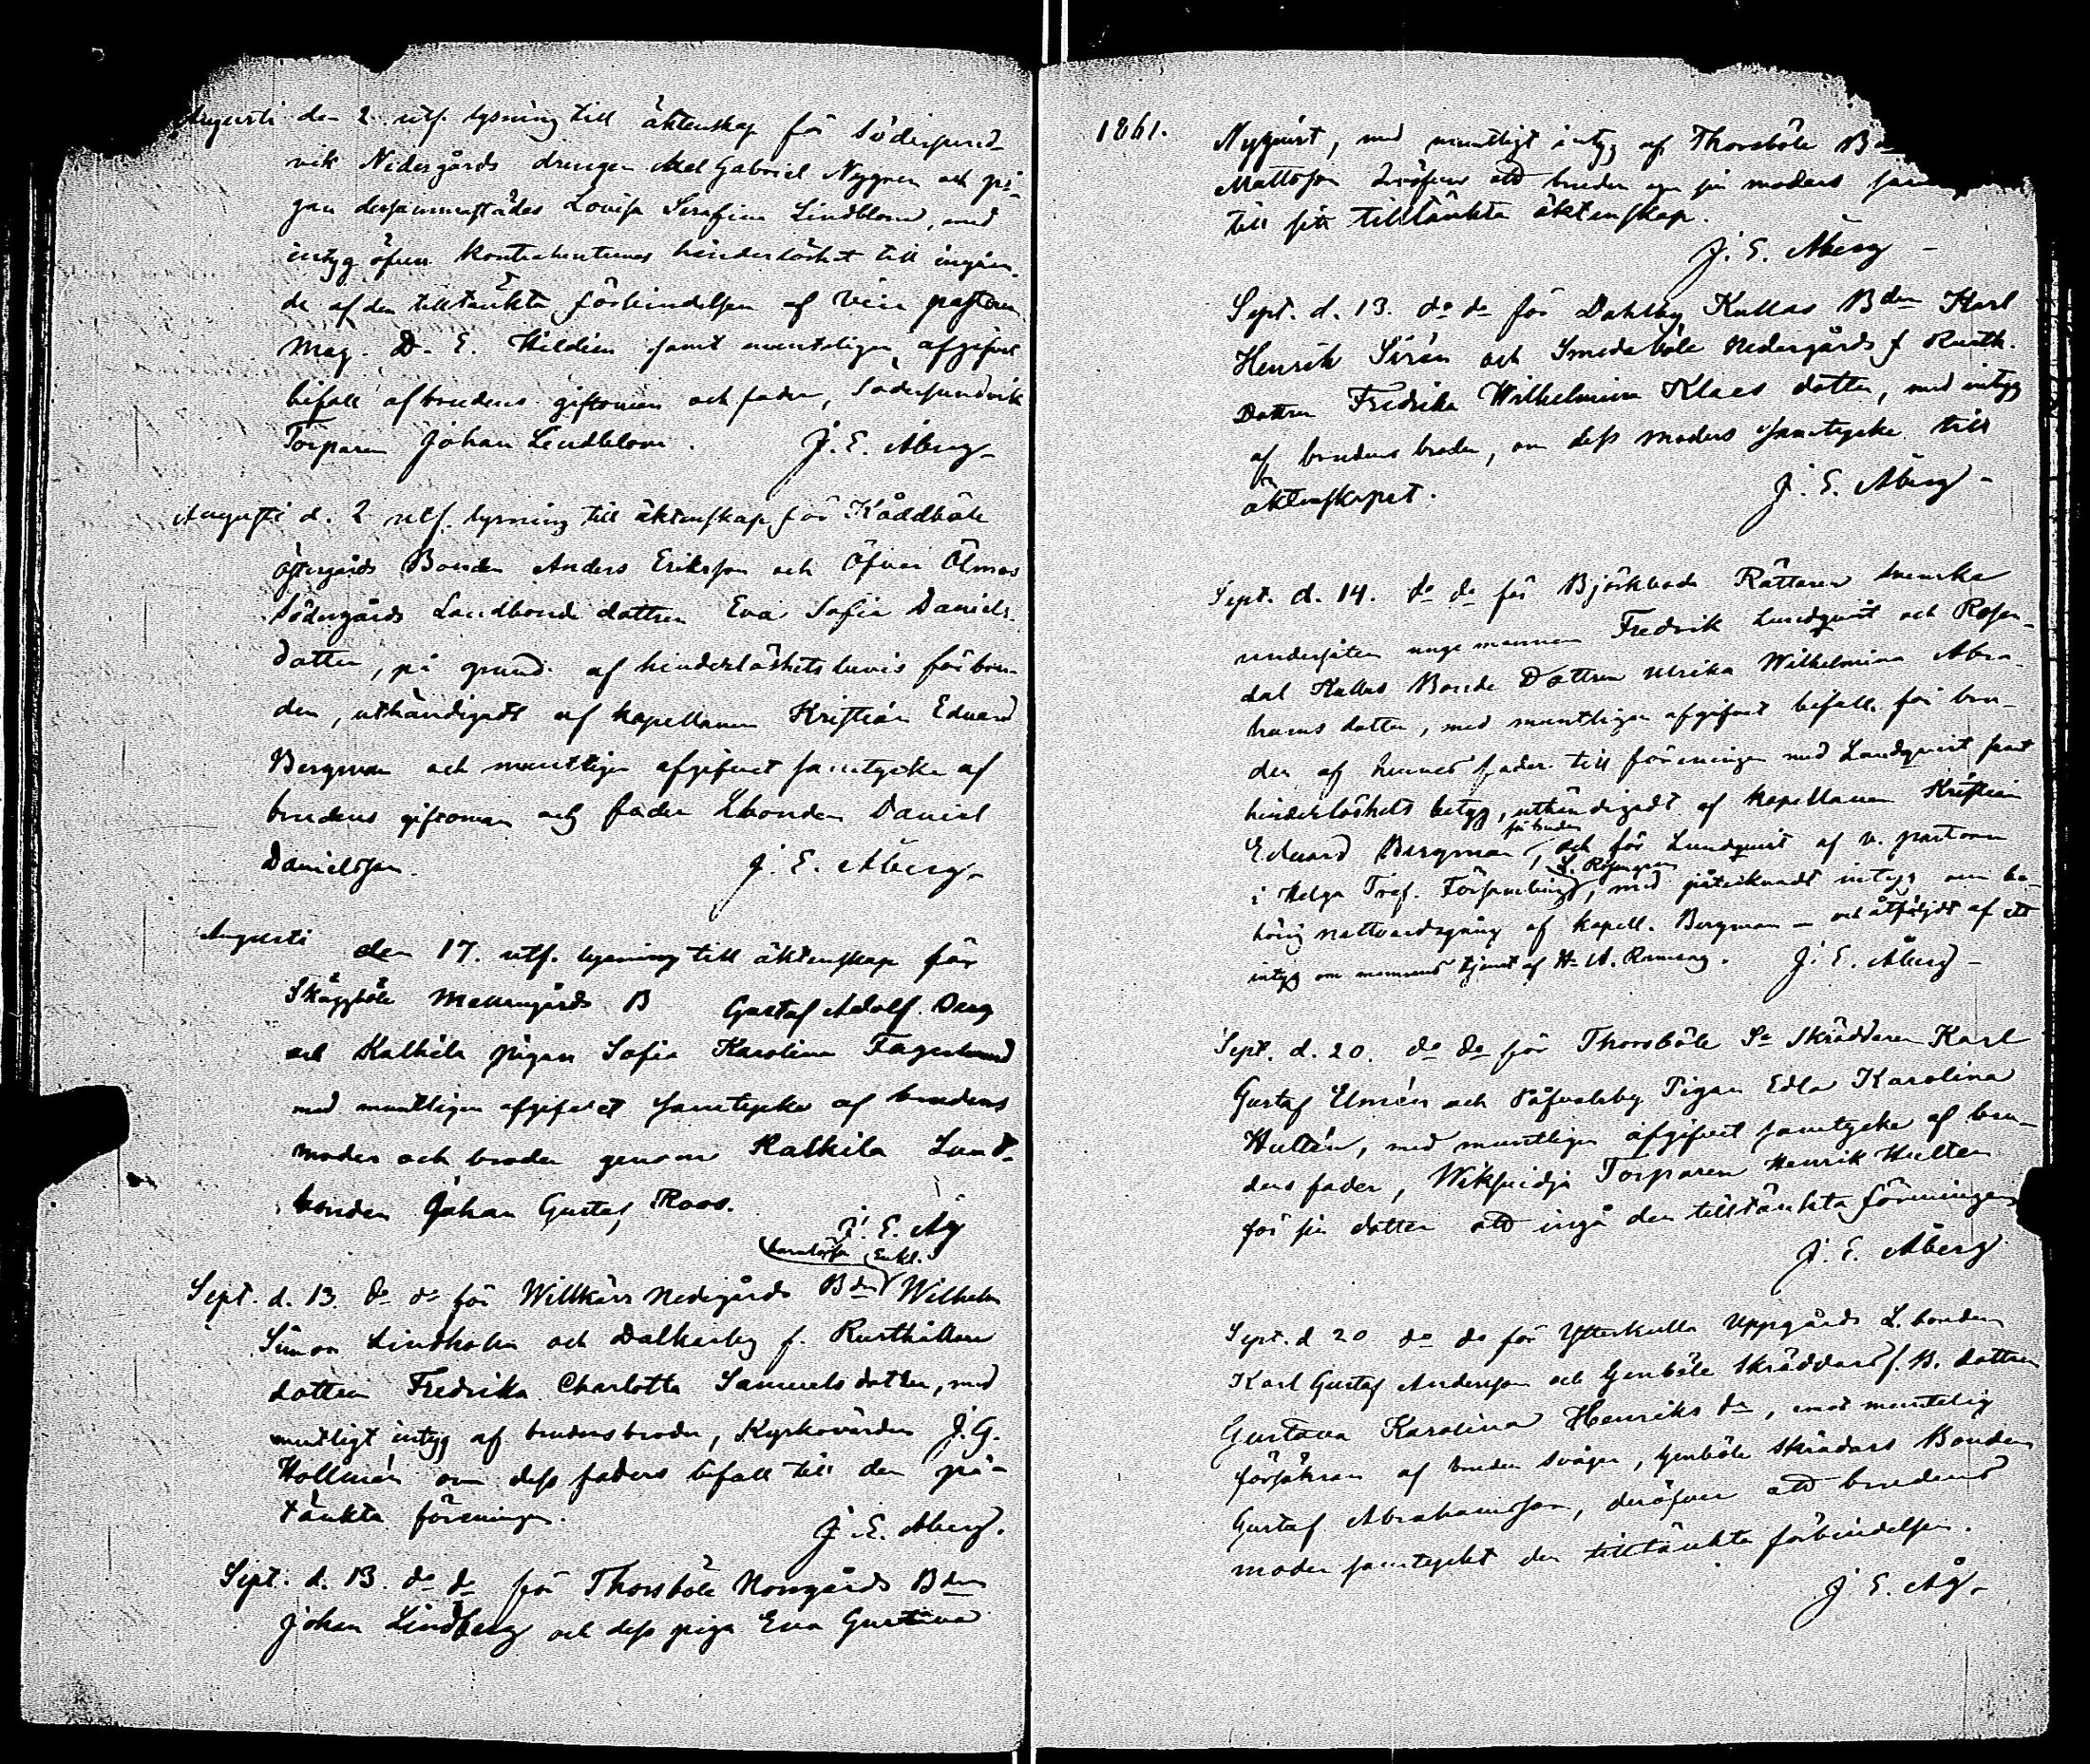 Augusti den 2. utf. lysning till äktenskap för Södersund-
vik Nedergårds drengen Abel Gabriel Nygren och pi-
gan dersammastädes Lovisa Serafina Lindblom, med
intyg öfver kontrahenternas hinderlöshet till ingåen-
de af den tilltänkta förbindelsen af Vice pastorn
Mag. D. E. Hildéen samt muntligen afgifvet
bifall af brudens giftoman och fader, Södersundvik
Torparen Johan Lindblom. J. E. Åberg
Augusti d. 2 utf. lysning till äktenskap för Kåddböle
Östergårds Bonden Anders Eriksson och Öfver Ölmos
Södergårds Landbonde dottren Eva Sofia Daniels-
dotter, på grund af hinderlöshets bevis för bru-
den, uthändigadt af kapellanen Kristian Eduard
Bergman och muntligen afgifvet samtycke af
brudens giftoman och fader Lbonden Daniel
Danielsson. J. E. Åberg
Augusti den 17. utf. lysning till äktenskap för
Skäggböle Mellangårds B Gustaf Adolf Berg
och Kalkila pigan Sofia Karolina Fagerlund
med muntligen afgifvet samtycke af brudens
moder och broder genom Kalkila Land-
bonden Johan Gustaf Roos.
J. E. Åg
Enkl.
Sept. d. 13. do do för Willkärr Nedergårds Bden Wilhelm
Simon Lindholm och Dalkarby f. Rusthållare
dottren Fredrika Charlotta Samuels dotter, med
muntligt intyg af brudens broder, Kyrkovärden J. G.
Hollmén om dess faders bifall till den på-
tänkta föreningen.
J. E. Åberg.
Sept. d. 13. do do för Thorsböle Norrgårds Bden
Johan Lindberg och dess piga Eva Gustava
1861. Nyqvist, med muntligt intyg af Thorsböle
Mattsson deröfver att bruden eger sin moders
till sitt tilltänkta äktenskap.
J. E. Åberg
Sept. d. 13. do do för Dahlby Kullas Bden Karl
Henrik Sirén och Smedsböle Nedergårds f Rusth.
Dottren Fredrika Wilhelmina Klaes dotter, med intyg
af brudens broder, om dess moders samtycke till
äktenskapet. J. E. Åberg
Sept. d. 14. do do för Björkboda Rättaren Svenska
undersåten unge mannen Fredrik Lundqvist och Rosen-
dal Kullas Bonde Dottren Ulrika Wilhelmina Abra-
hams dotter, med muntligen afgifvet bifall för bru-
den af hennes fader till föreningen med Lundqvist samt
hinderlöshets betyg, uthändigadt af kapellanen Kristian
för bruden
Eduard Bergman, och för Lundqvist af v. pastorn
i Helga Tref. Församling, med påtecknadt intyg om be-
hörig nattvardsgång af Kapell. Bergman – och åtföljdt af ett
intyg om mannens tjenst af H. A. Ramsay. J. E. Åberg
Sept. d. 20. do do för Thorsböle Sn Skräddaren Karl
Gustaf Elmén och Påfvalsby Pigan Edla Karolina
Hultén, med muntligen afgifvet samtycke af bru-
dens fader, Wiksvidja Torparen Henrik Hultén
för sin dotter att ingå den tilltänkta föreningen
J. E. Åberg
Sept. d 20 do do för Ytterkulla Uppgårds L.bonden
Karl Gustaf Andersson och Genböle Skräddars f. B. dottren
Gustava Karolina Henriks dr, med muntelig
försäkran af bruden svåger, Genböle Skräddars Bonden
Gustaf Abrahamsson, deröfver att brudens
moder samtyckt den tilltänkta förbindelsen.
J. E. Åg